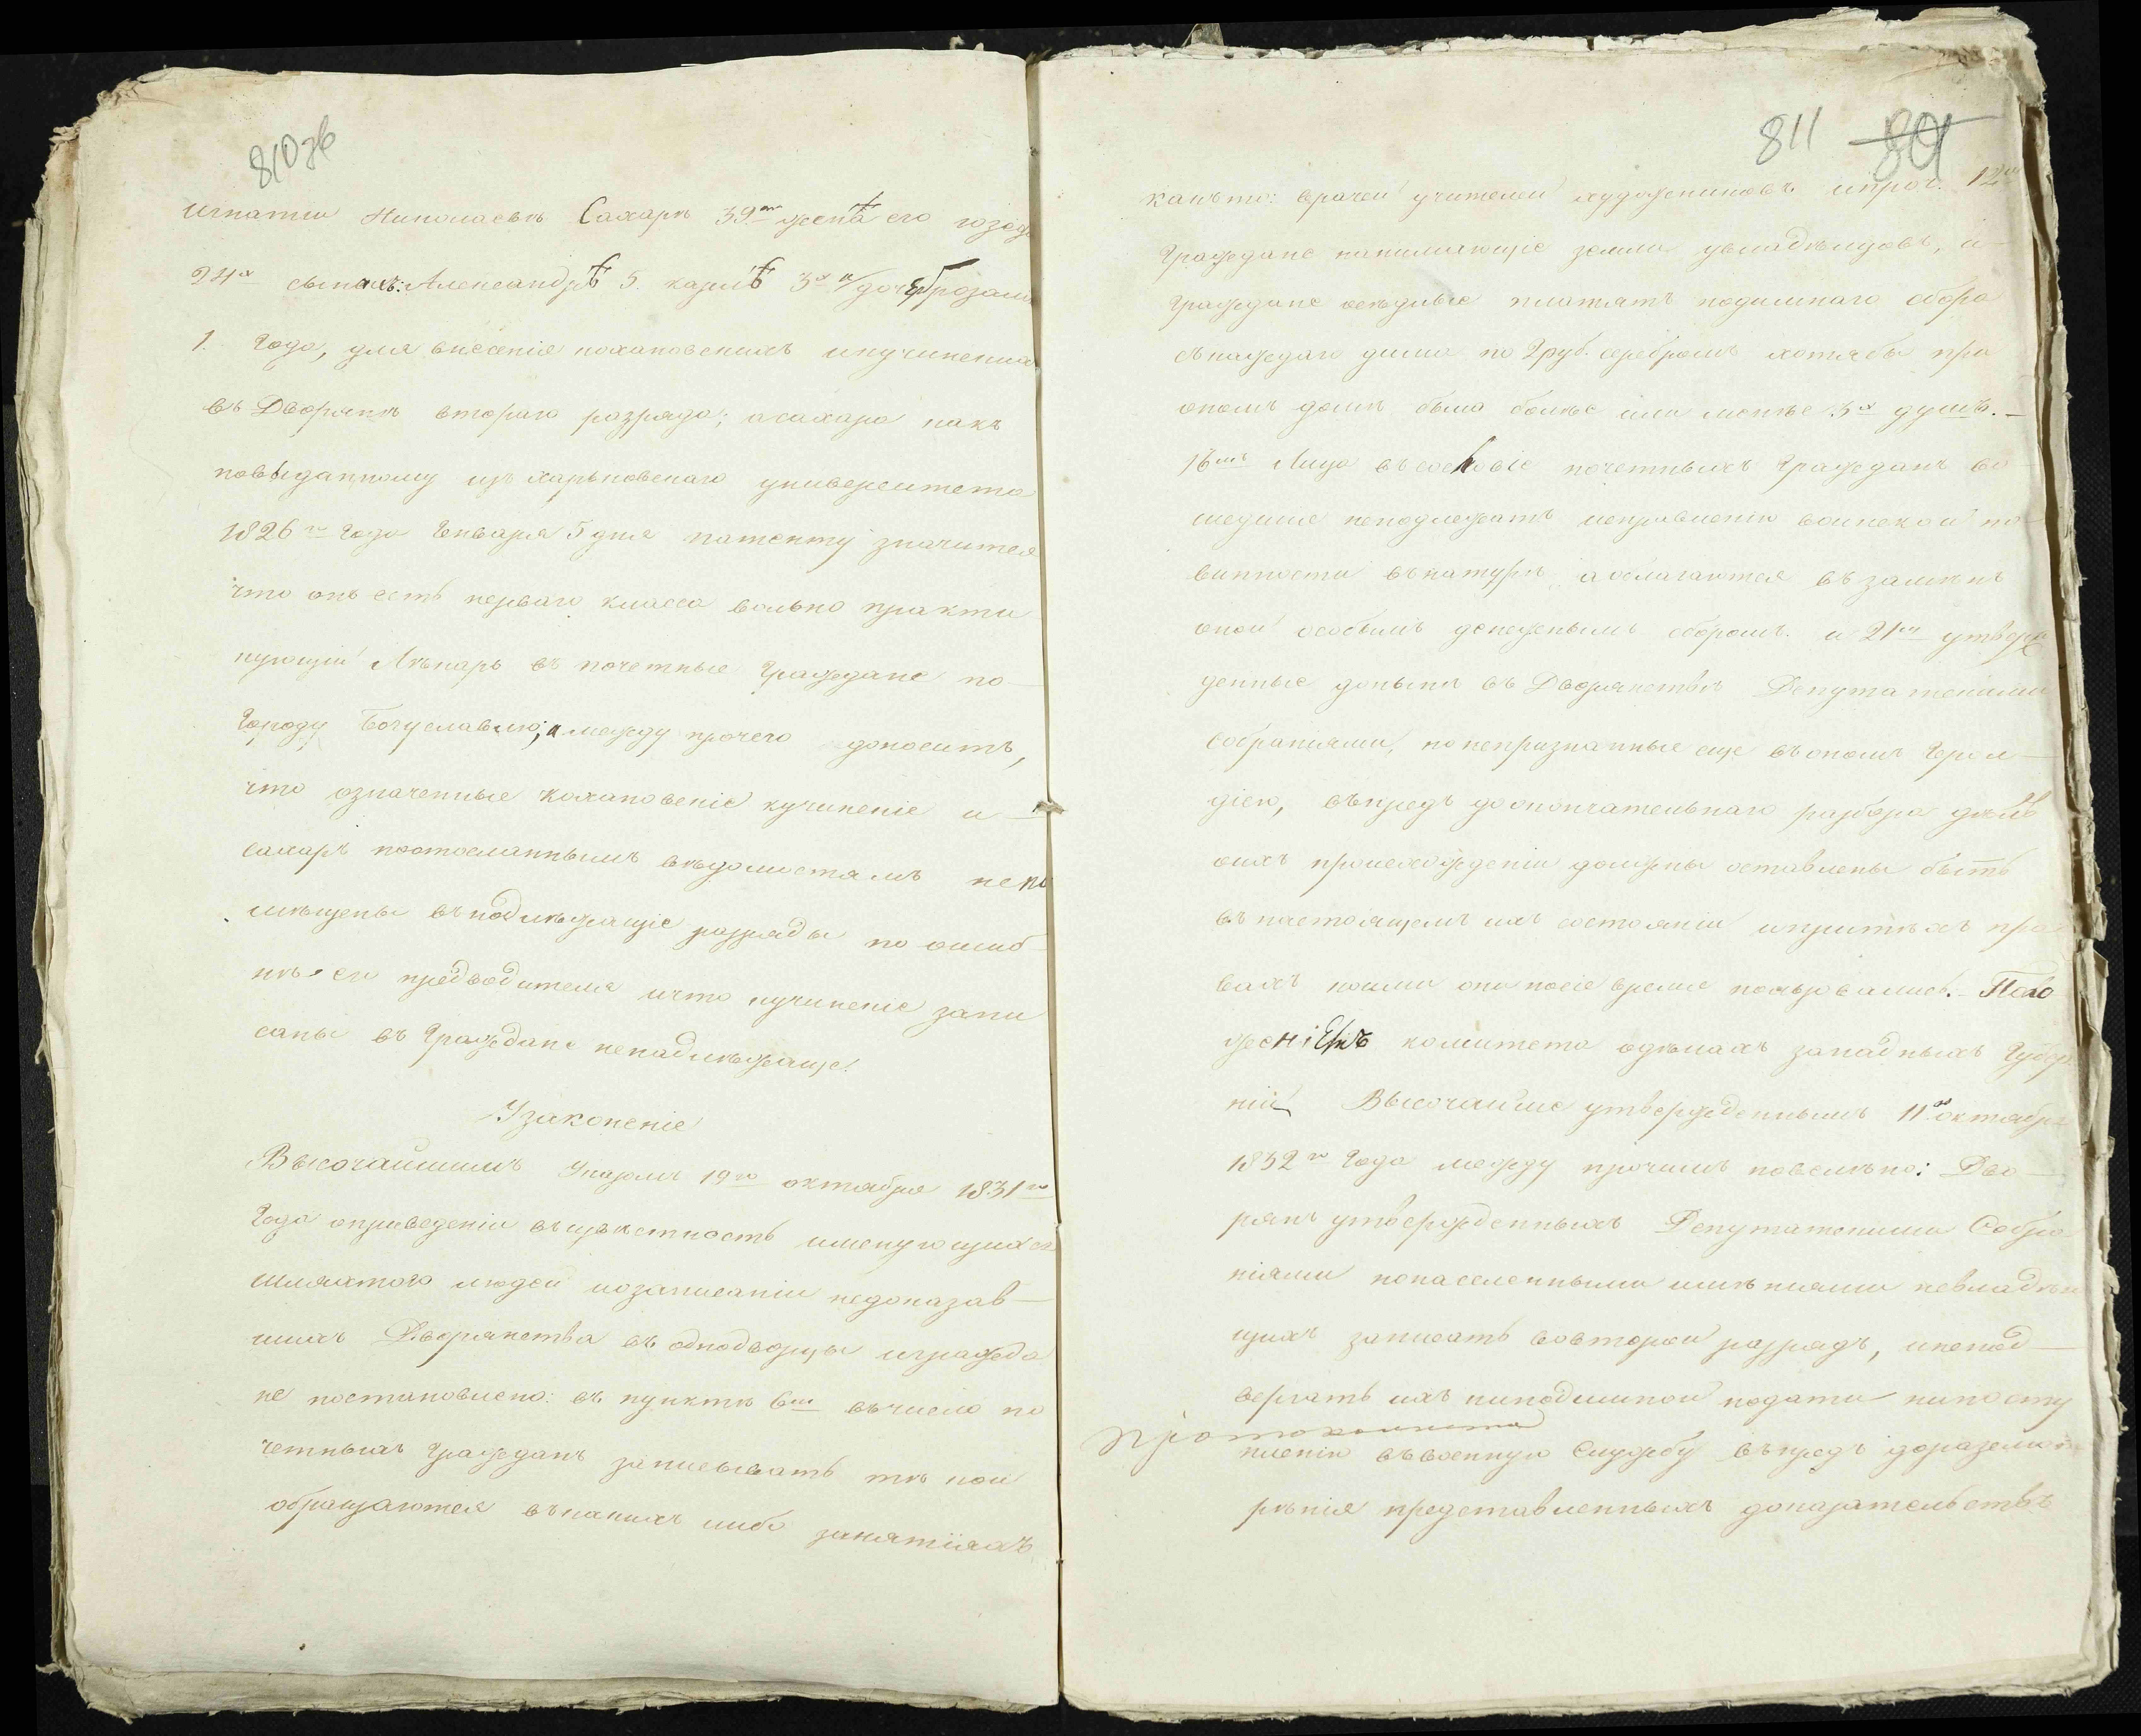 810 зв
Игнатии Николаевѣ Сахарѣ 39ти женѣ его
24х сынахъ: Александрѣ 5. карлѣ 3х и дочери розалии
1. Года, для внесенія кохановскихъ икучинскихъ
въ Дворянѣ втораго разряда; а сахара какъ
повыданному изъ харьковскаго университета
1826го Года Генваря 5 дня патенту значится
что онъ есть перваго класса вольно практи
кующій Лѣкарь въ почетные Граждане по
Городу Богуславлю; а между прочего доноситъ,
что означенные Кохановскіе кучинскіе и
сахаръ поотосланнымъ вѣдомостямъ непо
мѣщены вънадлѣжащіе разряды по ошиб
кѣ предводителя ичто кучинскіе запи
саны въ Граждане ненадлѣжаще.
Узаконеніе
Высочайшимъ Указомъ 19го октября 1831го
Года оприведеніи въизвѣстность именующихся
шляхтою людей иозаписаніи недоказав
шихъ Дворянства въ однодворцы игражда
не постановлено: въ пунктѣ 6мъ вчисло по
четныхъ Гражданъ записывать тѣ кои
обращаются вкакихъ либо занятіяхъ
811 801
какъто: врачей учителей художниковъ ипроч. 12
Граждане нанимающіе земли увладѣльцовъ, и
Граждане осѣдлые платятъ подымнаго сбора
скаждаго дыма по 2 руб. серебромъ хотябы при
ономъ домѣ было болѣе или менѣе 3х душъ.
16мъ Лица въсословіе почетныхъ Гражданъ во
шедшие неподлежатъ исправленію воинской по
винности внатурѣ, аоблагаются взамѣнъ
оной особымъ денежнымъ сборомъ. и 21мъ утверж
денные донынѣ въ Дворянствѣ Депутатскими
собраніями, нонепризнанные еще въономъ Герол
діею, впредь доокончательнаго разбора дѣлъ
оихъ происхожденіи должны оставлены быть
внастоящемъ ихъ состояніи ипритѣхъ пра
вахъ коими они посіе время пользовались. Поло
женіемъ комитета одѣлахъ западныхъ Губер
ній Высочайше утвержденнымъ 11го октября
1832го Года между прочимъ повелѣно: Дво
рянъ утвержденныхъ Депутатскими Собра
ніями нонаселенными имѣніями невладѣю
щихъ записать вовторой разрядъ, инепод
вергать ихъ ниподымной подати нипосту
пленію ввоенную Службу впредь доразсмот
рѣнія представленныхъ доказательствъ